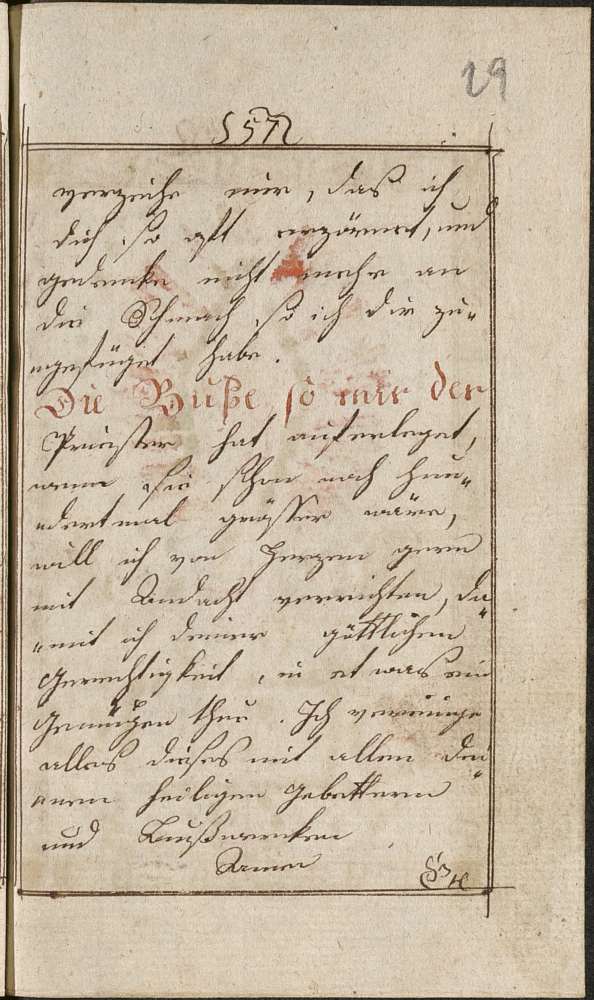 29
57
verzeihe mir, das ich
dich so oft erzörnet, und
gedencke nicht mehr an
die Schmach, so ich dir zu„
„gefüget habe.
Die Buße so mir der
Priester hat auferleget,
wenn sie schon noch hun„
„dertmal grösser wäre,
will ich von Herzen gern
mit Andacht verrichten, da„
„mit ich deiner göttlichen
Gerechtigkeit, in etwas ein
Genügen thue. Ich vereinige
alles dieses mit allen dei„
„nen heiligen Gebettern
und Bußwercken
Amen